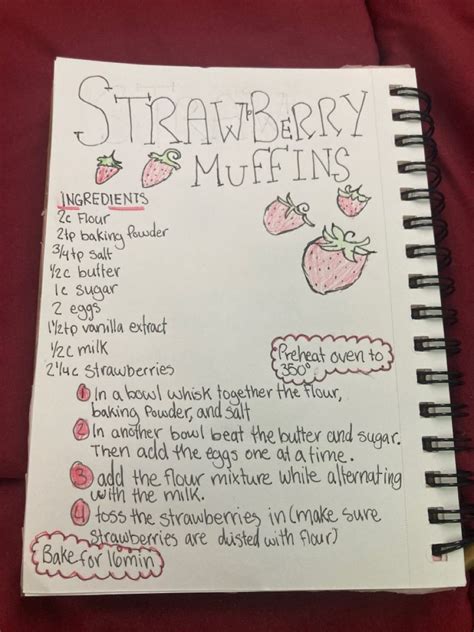 STRAWBERRY
MUFFINS
INGREDIENTS
2c flour
2tp baking powder
3/4tp salt
1/2c butter
1c sugar
2 eggs
1 1/2tp vanilla extract
1/2c milk
2 1/4c strawberries
Preheat oven to
350°
1 In a bowl whisk together the flour,
baking powder, and salt
2 In another bowl beat the butter and sugar.
Then add the eggs one at a time.
3 add the flour mixture while alternating
with the milk.
4 toss the strawberries in (make sure
strawberries are dusted with flour)
Bake for 16min